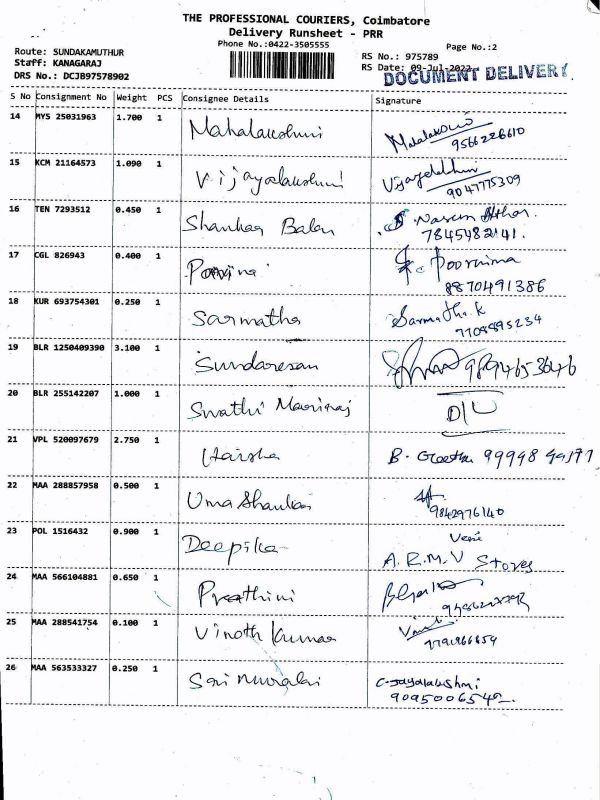 THE PROFESSIONAL COURIERS, Coimbatore
Delivery Runsheet - PRR
Phone No.:0422-3505555
Page No.:2
Route: SUNDAKAMUTHUR
Staff: KANAGARAJ
DRS No.: DCJB97578902
RS No.: 975789
RS Date: 09-Jul-2022
DOCUMENT DELIVERY
S No Consignment No Weight PCS Consignee Details Signature
14 MYS 25031963 1.700 1 Mahalakshmi Mahalakshmi
9566226610
15 KCM 21164573 1.090 1 Vijayalakshmi
9047775309
16 TEN 7293512 0.450 1 Shankar Balan
7845982141.
17 CGL 826943 0.400 1 Poornima
8870491386
18 KUR 693754301 0.250 1 Sarmatha Sarmatha.K
7708895234
19 BLR 1250409390 3.100 1 Sundaresan 9894653646
20 BLR 255142207 1.000 1 Swathi
21 VPL 520097679 2.750 1 Harsha B. Geetha 99948
22 MAA 288857958 0.500 1 Uma Shankar
9842976140
23 POL 1516432 0.900 1 Deepika
A.R.M.V Stores
24 MAA 566104881 0.650 1 Preathini
25 MAA 288541754 0.100 1 Vinoth Kumar
26 MAA 563533327 0.250 1 Sri Murali C. Jayalakshmi